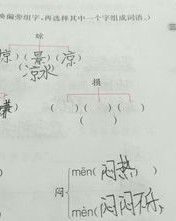 偏旁组字,再选择其中一个字组成词语。)
晾
惊)(景)(凉)
凉水
棋
( )( )( )
闷
mēn(闷热)
mèn(闷闷不乐)